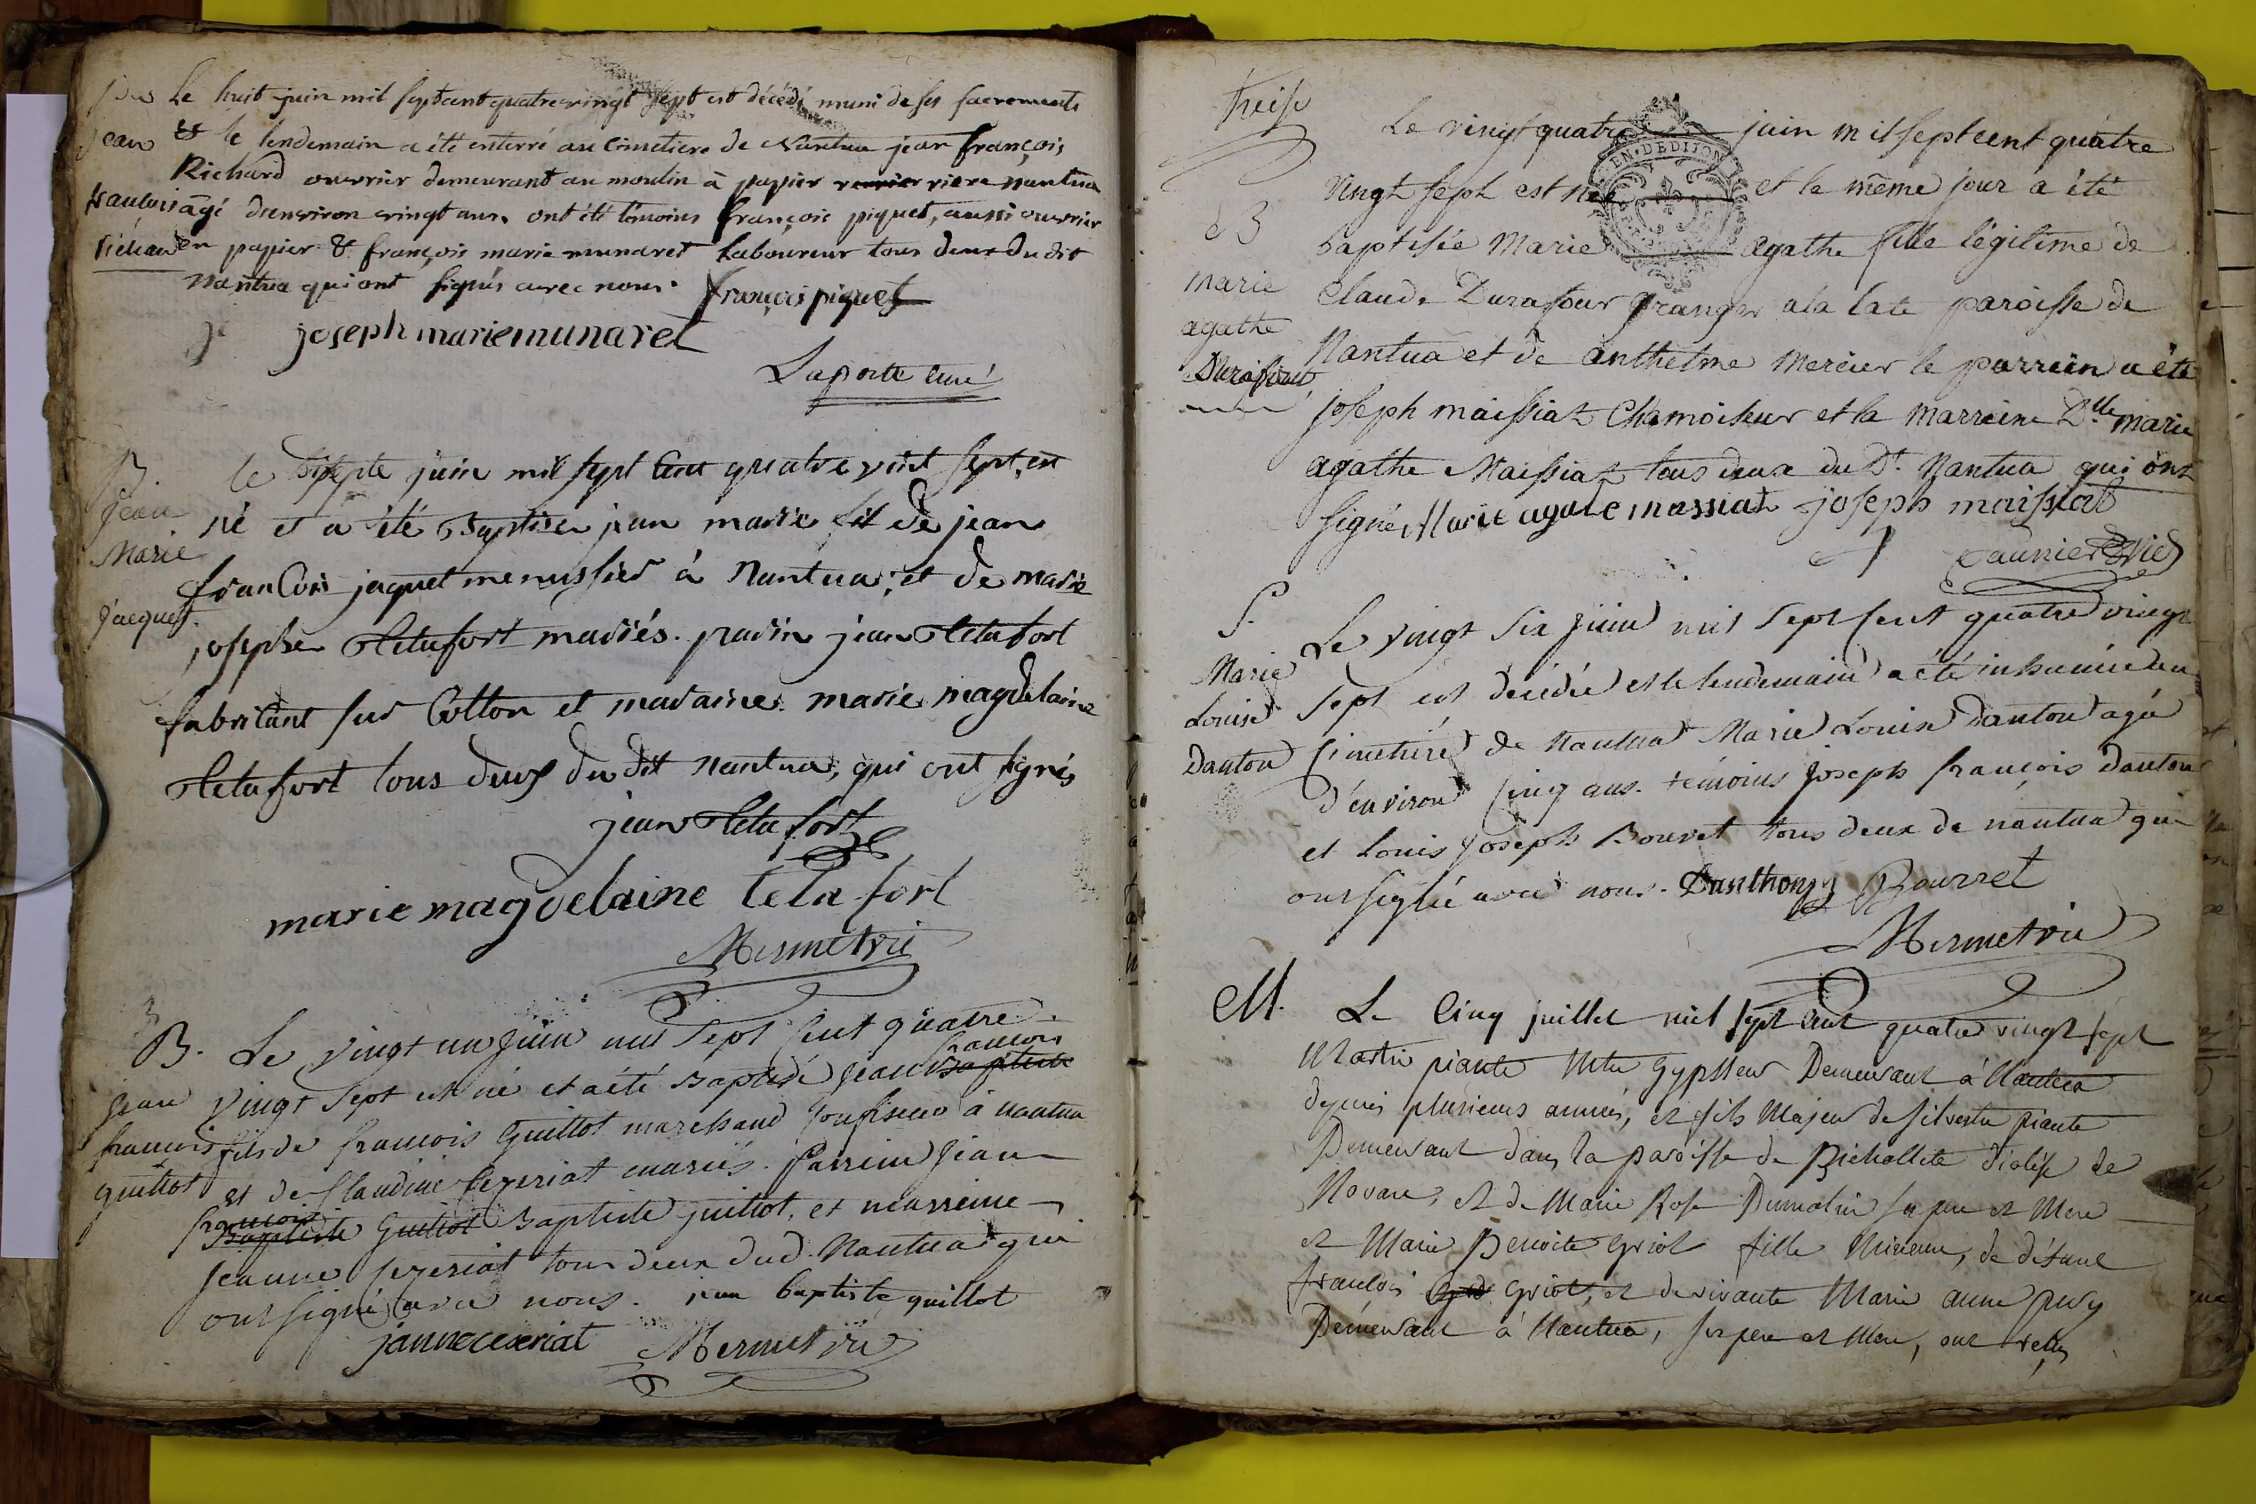 Le huit juin mil septcent quatrevingt sept est décédé muni de ses sacrements
Jean
& le lendemain a été enterré au Cimetiere de Nantua jean françois
Richard ouvrier demeurant au moulin à papier riere nantua
francois
âgé d'environ vingt ans. ont été témoins françois piquet, aussi ouvrier
Richard
en papier & françois marie munaret Laboureur tous deux du dit
Nantua qui ont signés avec nous. françois piquet
joseph marie munaret
Laporte curé
B.
le sept juin mil sept cent quatre vint sept, est
Jean
né et a été Baptisée jean marie fil de jean
Marie
francois jaquet menussier à Nantua, et de marie
jacquet.
josephe Tetafort mariés. parin jean Tetafort
fabricant sur Cotton et maraine marie magdelaine
Tetafort tous deux du dit nantua, qui ont signés
jean Teta fort
marie magdelaine teta fort
Mermet vic
B. Le vingt un juin mil sept cent quatre
francois
jean
vingt sept est né et a été Baptisé jean Baptiste
francois
fils de francois Guillot marchand Confiseur à nantua
guillot
et de Claudine Cezeriat mariés. Parrein Jean
francois
Baptiste Guillot Baptiste guillot, et marreine
Jeanne Cezeriat tous deux dud. Nantua qui
ont signé avec nous. jean baptiste guillot
janne ceseriat Mermet vic
treise
Le vingt quatre juin mil sept cent quatre
EN. DE DIJON
vingt sept est née et le même jour a été
83
baptisée Marie agathe fille légitime de
marie
Claude Durafour granger a la late paroisse de
agathe
Nantua et de anthelme Mercier le parrein a été
Durafour
joseph maissiat Chamoiseur et la Marreine Dlle marie
agathe Maissiat tous deux du Dt. Nantua qui ont
signé, Marie agate massiat joseph maissiat
Saunier Vic
S.
Le vingt six juin mil sept cent quatre vingt
Marie
sept est décédée et le lendemain a été inhumée au
Louise
Danton
Cimetiere de Nantua Marie Louise Danton agée
d'environ Cinq ans. témoins Joseph françois Danton
et Louis Joseph Bouvret tous deux de nantua qui
ont signé avec nous. Danthon Bouvret
Mermet vic
M. Le Cinq juillet mil sept cent quatre vingt sept
Martin piante Mtre Gypsseur Demeurant à Nantua
depuis plusieurs années, et fils Majeur de silvestre piante
Demeurant dans la paroisse de diocèse de
Novare, et de Marie Rose ses pere et Mere
et Marie Benoite Griot fille Mineure, de défunt
francois Griot, et de vivante Marie anne
Demeurant à Nantua, ses pere et Mere, ont reçu